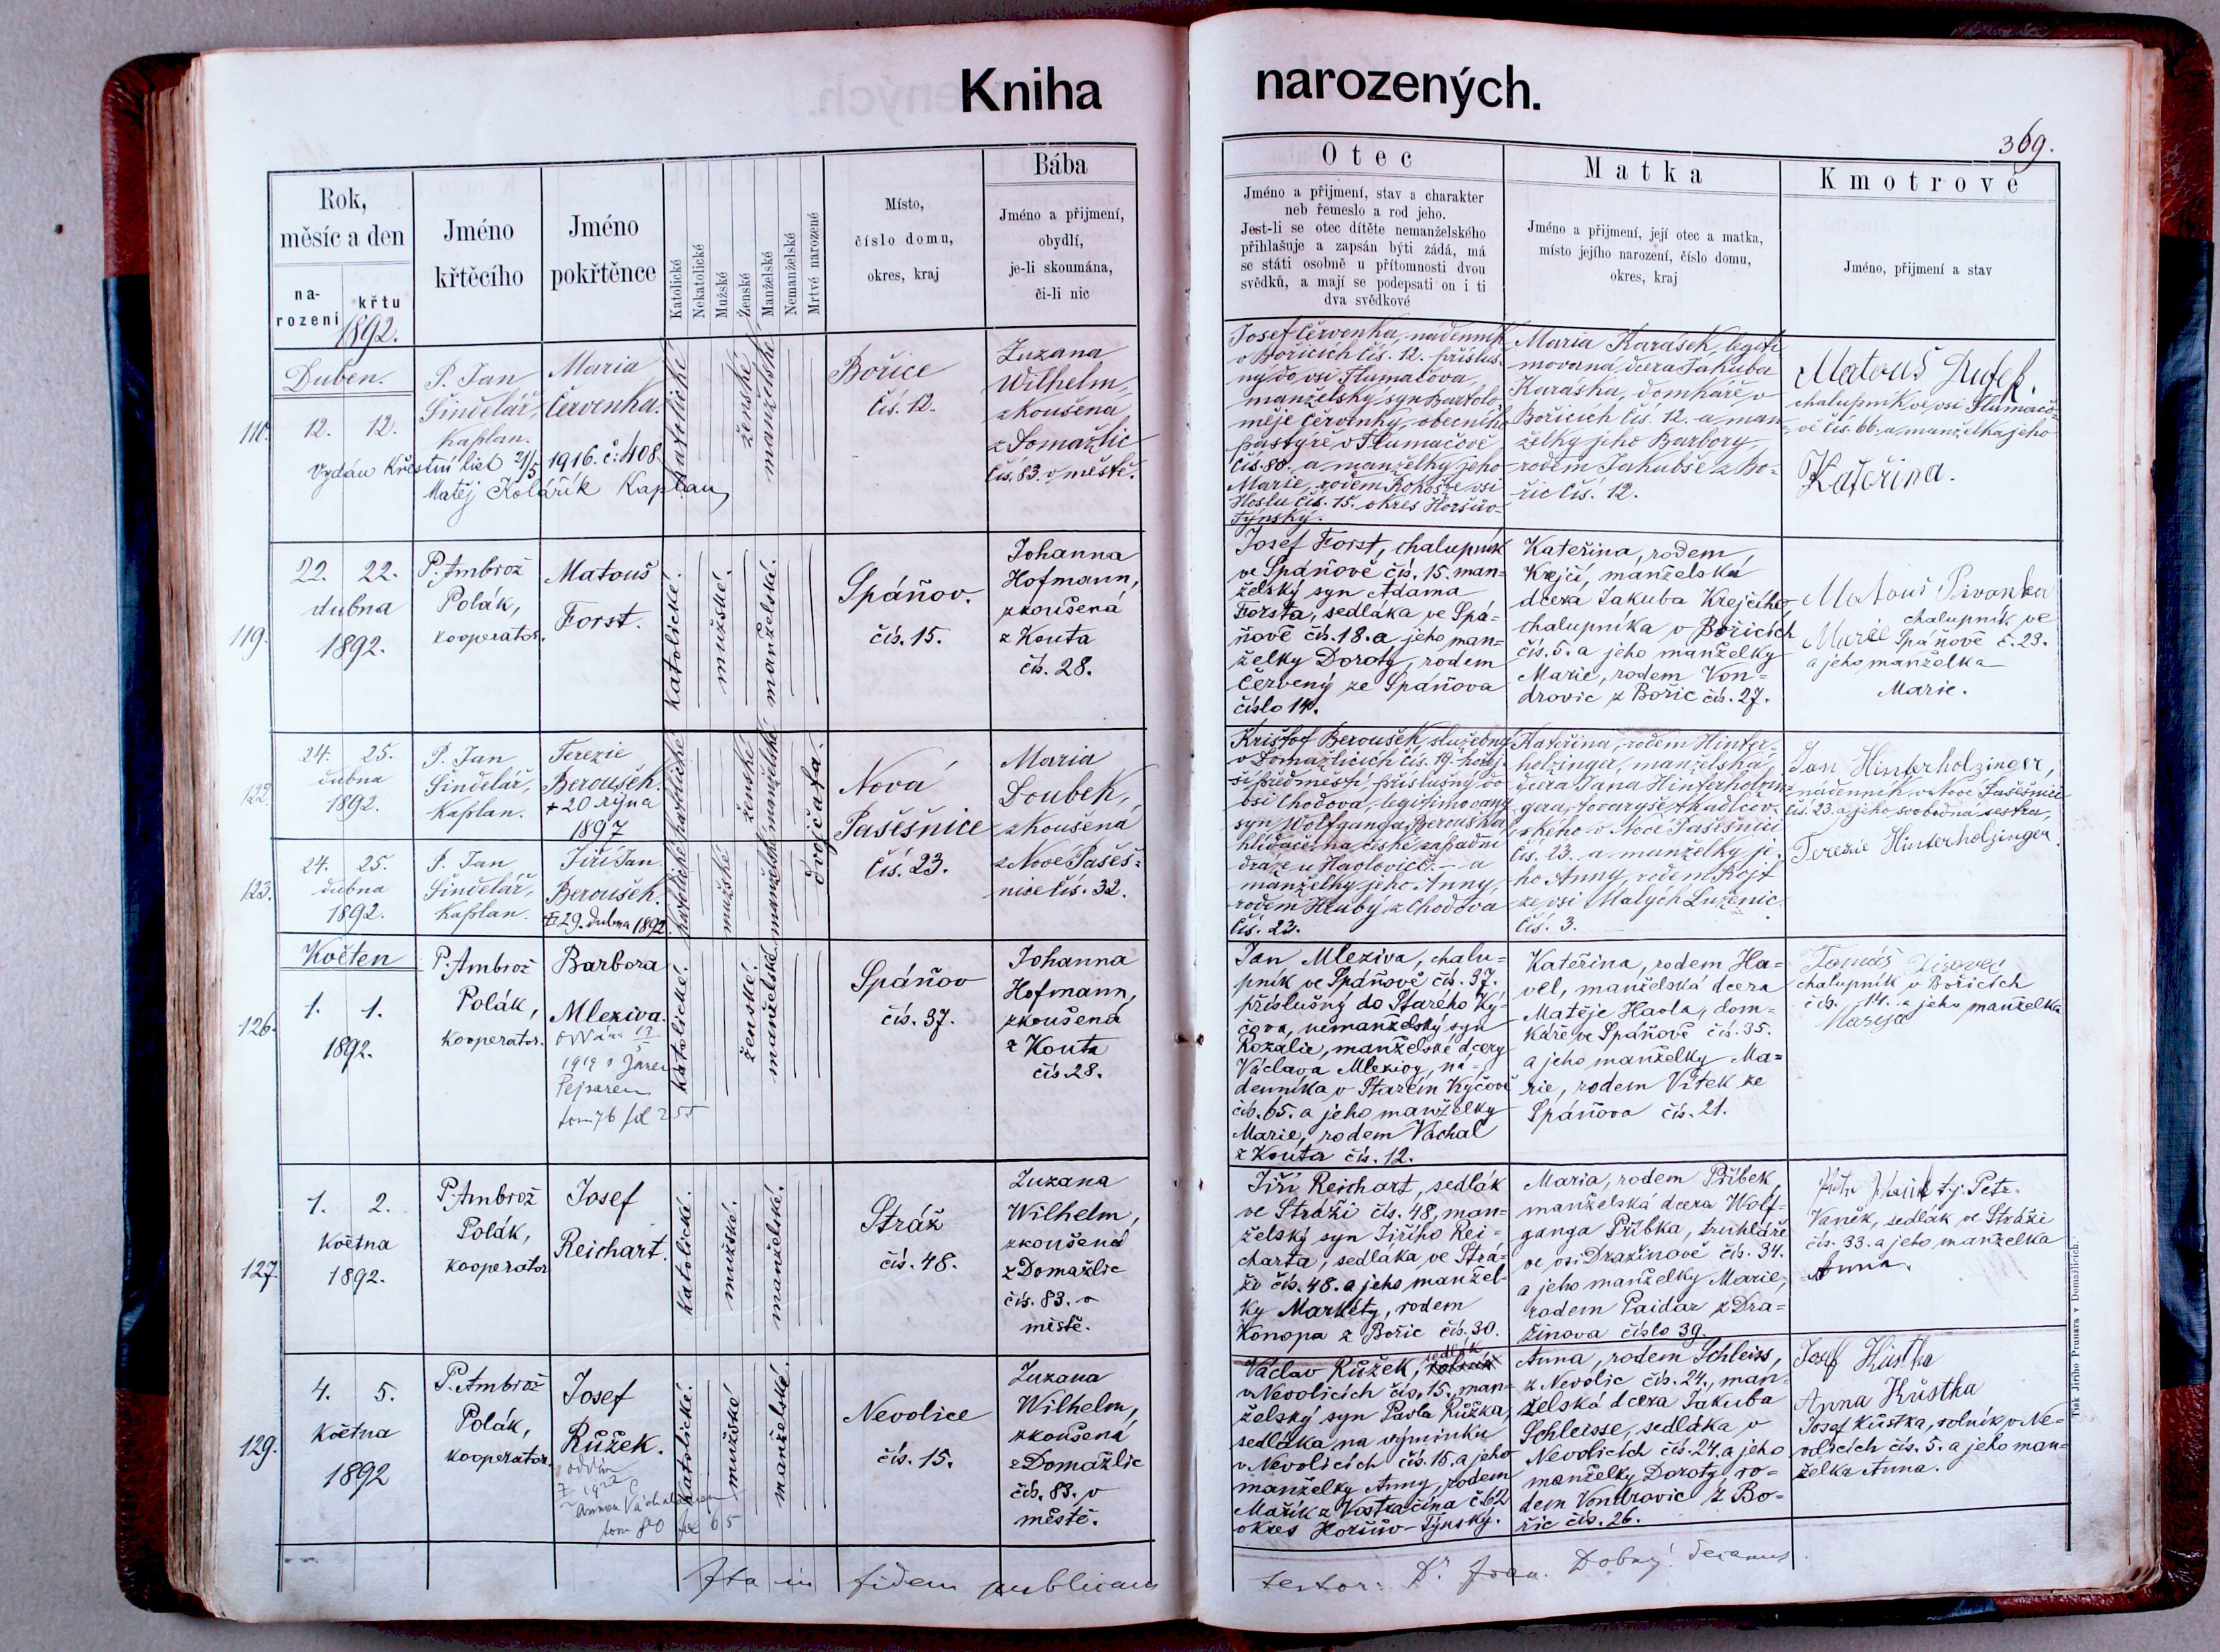 Kniha
narozených.
369.
Rok,
měsíc a den
na-
rození
křtu
1892.
Jméno
křtěcího
Jméno
pokřtěnce
Katolické
Nekatolické
Mužské
Ženské
Manželské
Nemanželské
Mrtvé narozené
Místo,
číslo domu,
okres, kraj
Bába
Jméno a přijmení,
obydlí,
je-li skoumána,
či-li nic
Otec
Jméno a přijmení, stav a charakter
neb řemeslo a rod jeho.
Jest-li se otec dítěte nemanželského
přihlašuje a zapsán býti žádá, má
se státi osobně u přítomnosti dvou
svědků, a mají se podepsati on i ti
dva svědkové
Matka
Jméno a přijmení, její otec a matka,
místo jejího narození, číslo domu,
okres, kraj
Kmotrové
Jméno, přijmení a stav
Duben.
12. 12.
P. Jan
Šindelář,
Kaplan.
Maria
Červenka.
Vydán Křestní list 21/5 1916. č: 408
Matěj Kolářík Kaplan
katolické
ženské
manželské
Bořice
Čís. 12.
Zuzana
Wilhelm,
zkoušena
z Domažlic
čís. 83. v městě.
Josef Červenka, nádenník
v Bořicích čís. 12. přísluš-
ný do vsi Tlumačova,
manželský syn Bartolo-
měje Červenky, obecního
pastýře v Tlumačově
čís. 80. a manželky jeho
Marie, rodem
čís. 15. okres Horšův-
Týnský.
Maria Karásek, legiti-
movaná dcera Jakuba
Karáska, domkáře v
Bořicích čís. 12. a man-
želky jeho Barbory
rodem Jakubše z Bo-
řic čís. 12.
Matouš Dufek.
chalupník ve vsi Tlumačo-
vě čís. 66. a manželka jeho
Kateřina.
119.
22. 22.
dubna
1892.
P. Ambrož
Polák,
kooperator.
Matouš
Forst.
Katolické.
mužské.
manželské.
Spáňov.
čís. 15.
Johanna
Hofmann,
zkoušená
z Kouta
čís. 28.
Josef Forst, chalupník
ve Spáňově čís. 15. man-
želský syn Adama
Forsta, sedláka ve Spá-
ňově čís. 18. a jeho man-
želky Doroty, rodem
Červený ze Spáňova
číslo 14.
Kateřina, rodem
Krejčí, manželská
dcera Jakuba Krejčího,
chalupníka v Bořicích
čís. 5. a jeho manželky
Marie, rodem Von-
drovic z Bořic čís. 27.
Matouš Pivonka
chalupník ve
Marie Spáňově č. 23.
a jeho manželka
Marie.
122.
24. 25.
dubna
1892.
P. Jan
Šindelář,
Kaplan.
Terezie
Beroušek.
+ 20 října
1897
katolické
ženské
manželské
dvojčata.
Nová
Pasěšnice
čís. 23.
Maria
Doubek,
zkoušená
z Nové Paseš-
nice čís. 32.
123.
24. 25.
dubna
1892.
P. Jan
Šindelář,
Kaplan.
Jiří Jan
Beroušek.
+ 29. dubna 1892.
katolické
mužské
manželské
Krištof Beroušek, služebný
v Domažlicích čís. 19. hořej-
ší předměstí, příslušný do
vsi Chodova, legitimovaný
syn Wolfganga Berouška,
hlídače na české západní
dráze u Havlovic č. — a
manželky jeho Anny,
rodem Hrubý z Chodova
čís. 23.
Kateřina, rodem Hinter-
holzinger, manželská
dcera Jana Hinterholzin-
gera, tovaryše tkadlcov-
ského v Nové Pasěšnici
čís. 23. a manželky je-
ho Anny, rodem Vojt
ze vsi Malých Luženic
čís. 3.
Jan Hinterholzinger,
nádenník v Nové Pasěšnici
čís. 23. a jeho svobodná sestra,
Terezie Hinterholzinger
Květen
126.
1. 1.
1892.
P. Ambrož
Polák,
kooperator.
Barbora
Mleziva.
1919 s Janem
Pejsarem
tom 76 fol 255
Katolické.
ženské.
manželské.
Spáňov
čís. 37.
Johanna
Hofmann,
zkoušená
z Kouta
čís. 28.
Jan Mleziva, chalu-
pník ve Spáňově čís. 37.
příslušný do Starého Ký-
čova, nemanželský syn
Rozalie, manželské dcery
Václava Mlezivy, ná-
denníka v Starém Kýčově
čís. 65. a jeho manželky
Marie, rodem Váchal
z Kouta čís. 12.
Kateřina, rodem Ha-
vel, manželská dcera
Matěje Havla, dom-
káře ve Spáňově čís. 35.
a jeho manželky Ma-
rie, rodem Vítek ze
Spáňova čís. 21.
Tomáš
chalupník v Bořicích
čís. 14. a jeho manželka
Marije
127.
1. 2.
Května
1892.
P. Ambrož
Polák,
kooperator
Josef
Reichart.
Katolické.
mužské.
manželské.
Stráž
čís. 48.
Zuzana
Wilhelm,
zkoušená
z Domažlic
čís. 83. v
městě.
Jiří Reichart, sedlák
ve Stráži čís. 48, man-
želský syn Jiřího Rei-
charta, sedláka ve Strá-
ži čís. 48. a jeho manžel-
ky Markéty, rodem
Konopa z Bořic čís. 30.
Maria, rodem Přibek,
manželská dcera Wolf-
ganga Přibka, truhláře
ve vsi Dražinově čís. 34.
a jeho manželky Marie,
rodem Paidar z Dra-
žinova číslo 39.
tj. Petr
Vaněk, sedlák ve Stráži
čís. 33. a jeho manželka
Anna.
129.
4. 5.
Května
1892
P. Ambrož
Polák,
kooperator.
Josef
Růžek.
oddán
tom 80 fol 65
Katolické.
mužské
manželské.
Nevolice
čís. 15.
Zuzana
Wilhelm,
zkoušená
z Domažlic
čís. 83. v
městě.
Václav Růžek, sedlák
v Nevolicích čís. 15., man-
želský syn Pavla Růžka,
sedláka na výminku
v Nevolicích čís. 15. a jeho
manželky Anny, rodem
Mařík z Vostračína č. 62
okres Horšův-Týnský.
Anna, rodem Schleiss,
z Nevolic čís. 24., man-
želská dcera Jakuba
Schleisse, sedláka v
Nevolicích čís. 24. a jeho
manželky Doroty ro-
dem Vondrovic z Bo-
řic čís. 26.
Josef Kůstka
Anna Kůstka
Josef Kůstka, rolník v Ne-
volicích čís. 5. a jeho man-
želka Anna.
Ita in fidem publicam
testor: Dr Joan. Dobrý. decanus.
Tisk Jiřího Prunara v Domažlicích.